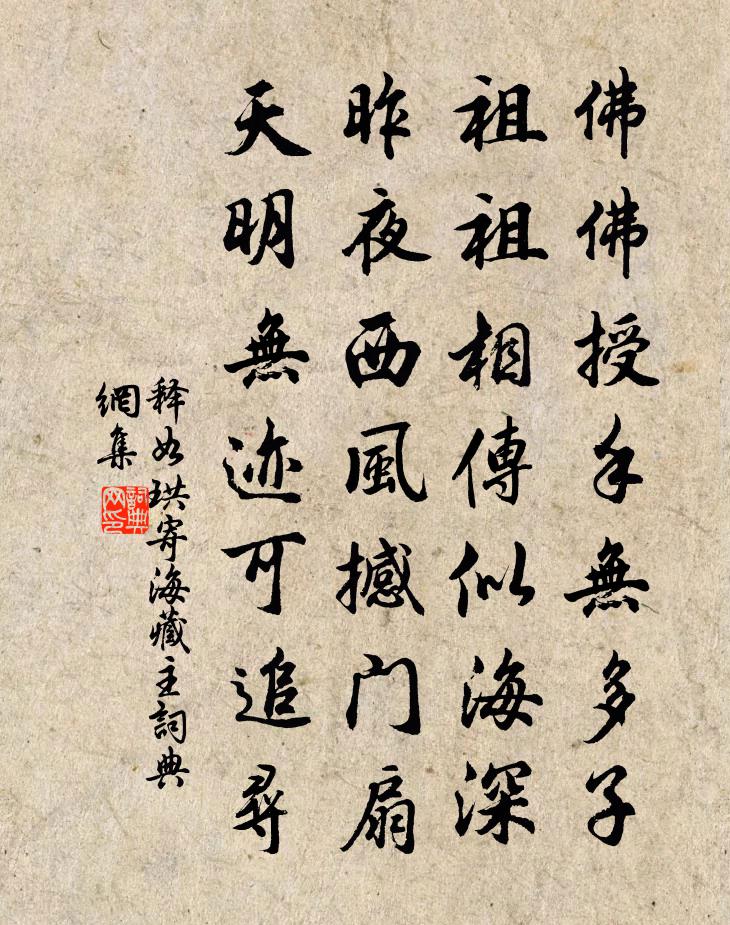 佛佛授手無多子
祖祖相傳似海深
昨夜西風撼门扇
天明無迹可追尋
释如珙寄海藏主詞典
網集
詞典
网印